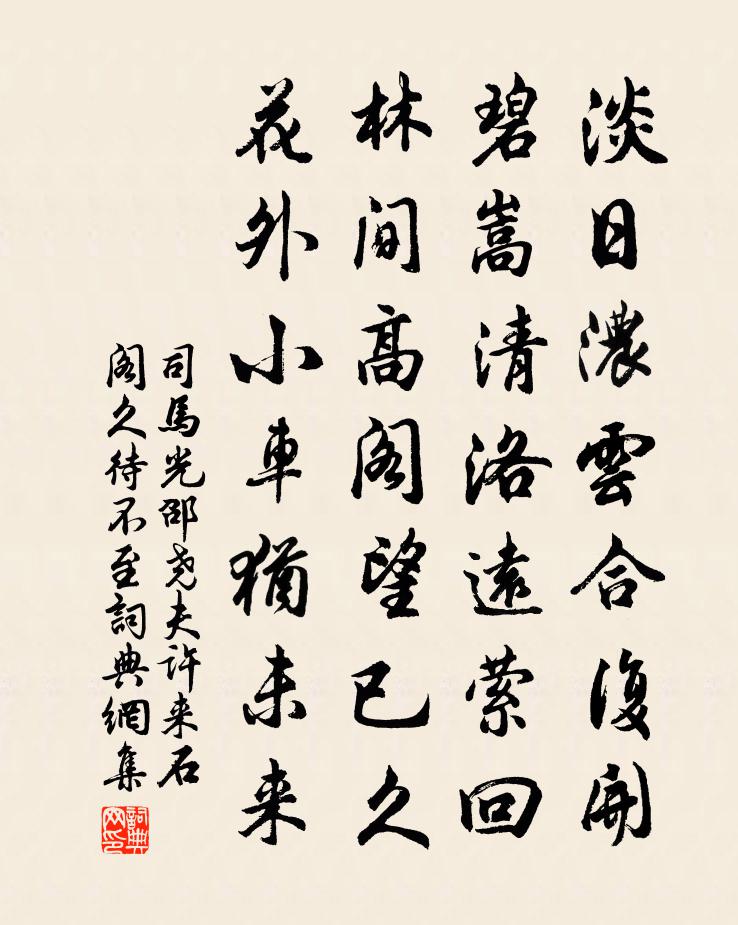 淡日濃雲合復開
碧嵩清洛遠萦回
林間高阁望已久
花外小車猶未来
司馬光邵尧夫许来石
阁久待不至詞典網集
詞典网印